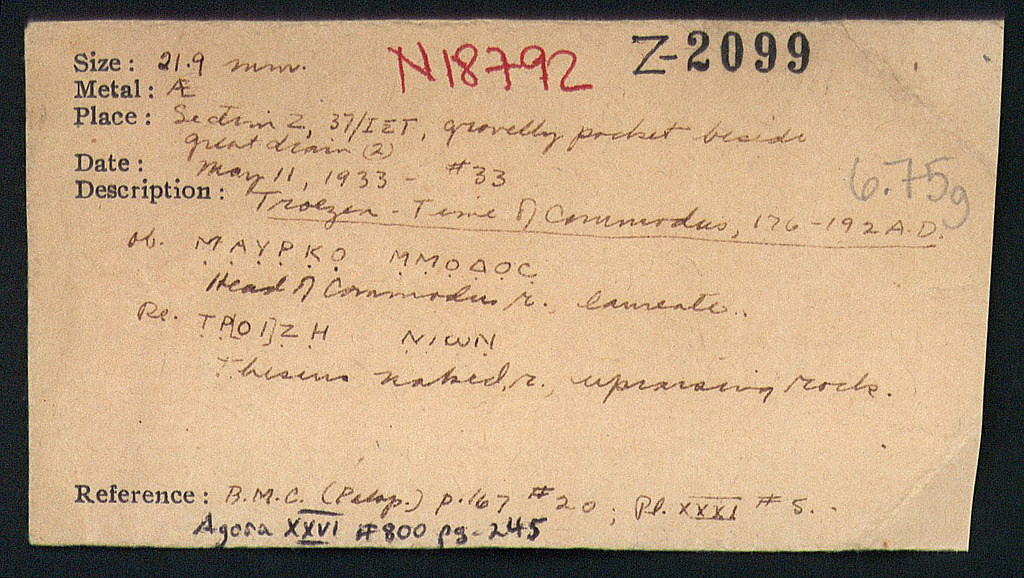 N18792 Z-2099
Size: 21.9 mm.
Metal: Æ
Place: Section Z, 37/ΙΕΤ, gravelly pocket beside
great drain (2)
Date: May 11, 1933 - #33
6.75g
Description: Troezen - Time of Commodus, 176-192 A.D.
ob. ΜΑΥΡΚΟ ΜΜΟΔΟC
Head of Commodus r., laureate..
Re. ΤΡ[ΟΙ]ΖΗ ΝΙωΝ
Theseus naked, r., upraising rock.
Reference: B.M.C. (Pelop.) p.167 #20; Pl. XXXI #5..
Agora XXVI #800 pg-245